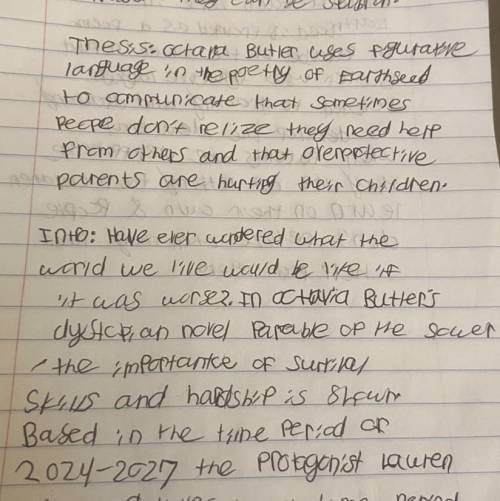 they can be
Thesis: octavia Butler uses figurative
language in the poetry of Earthseed
to communicate that sometimes
People don't relize they need help
from others and that overprotective
parents are hurting their children.
Into: Have ever wondered what the
world we live would be like if
it was worse? In octavia Butler's
dystopian novel Parable of the sower
the importance of survival
skills and hardship is shown.
Based in the time Period of
2024-2027 the Protagonist Lauren